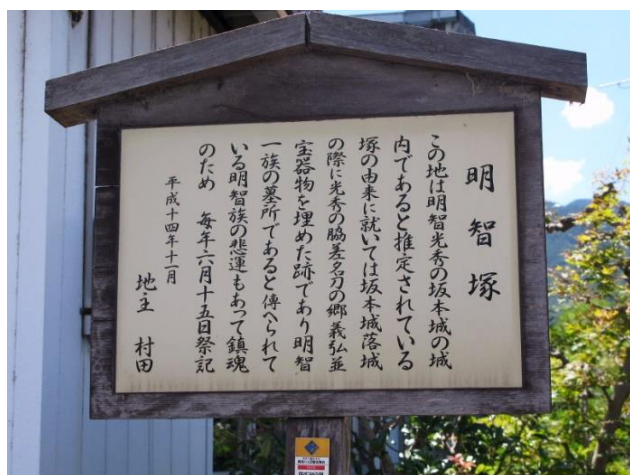 明智塚
この地は明智光秀の坂本城の城
内であると推定されている
塚の由来に就いては坂本城落城
の際に光秀の脇差名刀の郷義弘並
宝器物を埋めた跡であり明智
一族の墓所であると傳へられて
いる明智族の悲運もあって鎮魂
のため 毎年六月十五日祭記
平成十四年十一月
地主 村田